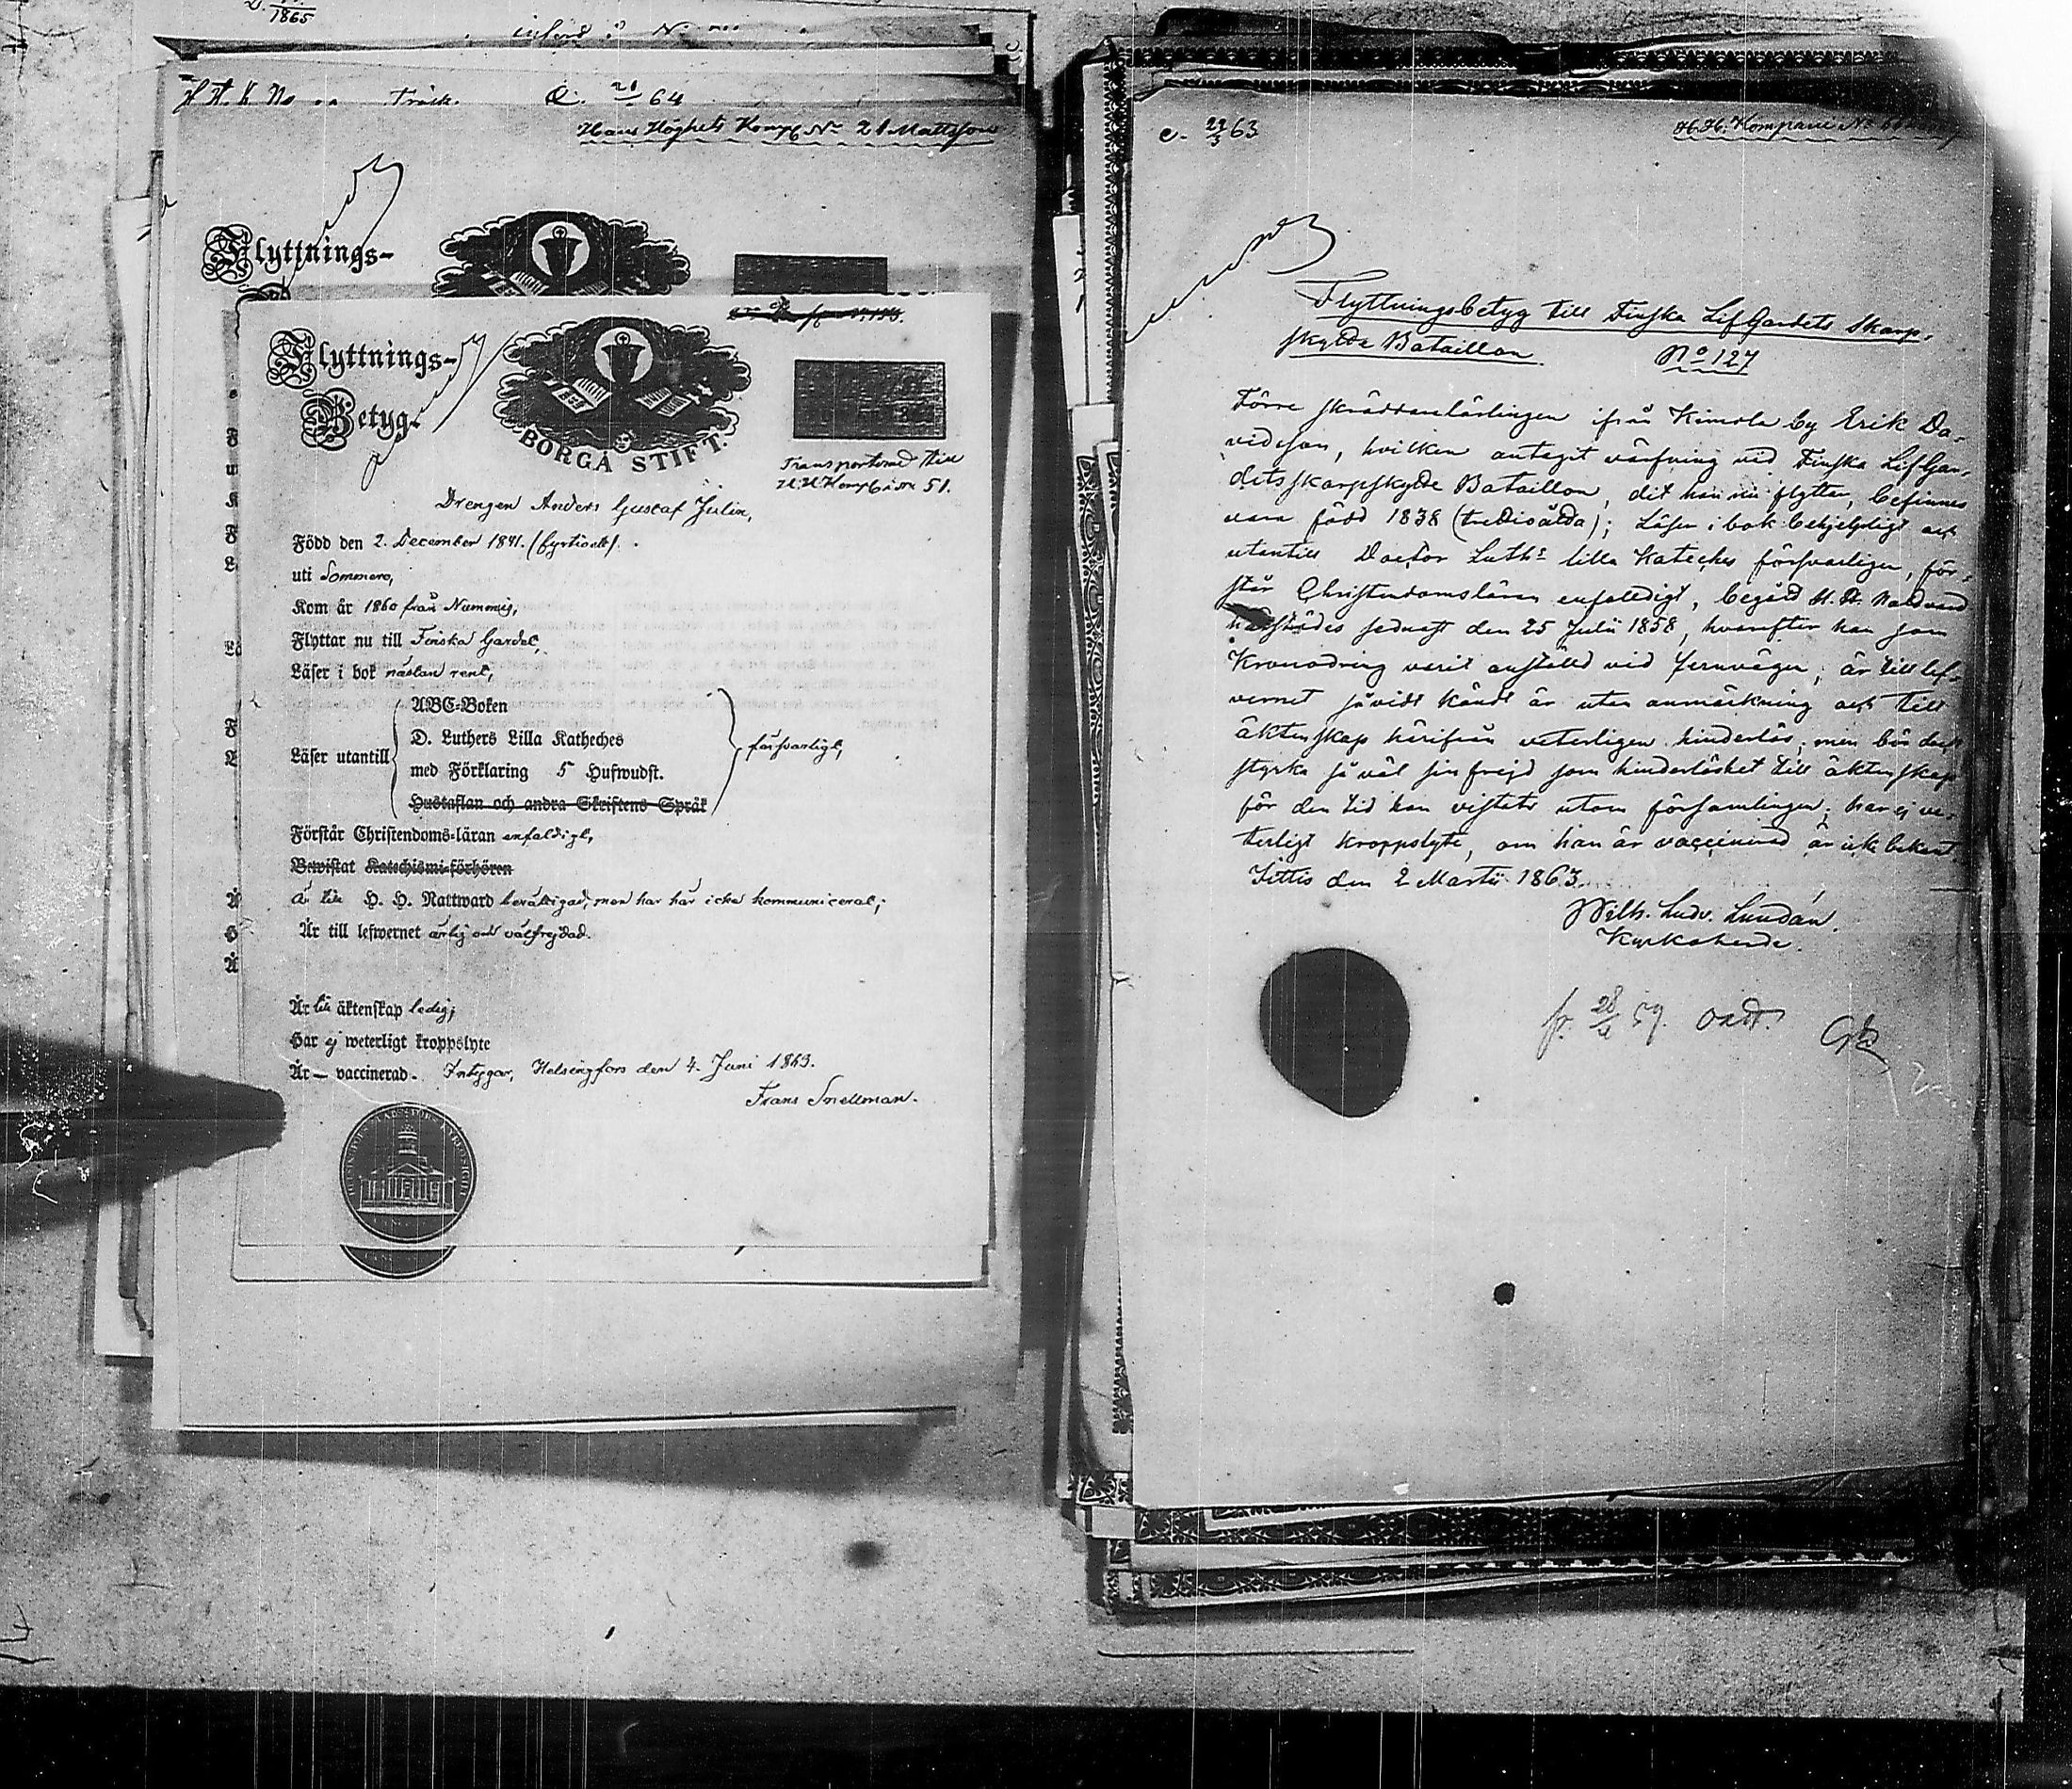 1865
införd i N:
H. H. K. No Träsk. D. 21/64
Hans Höghets Komp. No 21 Mattsson
Flyttnings-
Flyttnings-
Betyg.
BORGÅ STIFT.
Transporterad till
H. H. Komp. 51.
Drengen Anders Gustaf Julin,
Född den 2. December 1841. (fyrtioett).
uti Sommero,
Kom år 1860 från Nummis,
Flyttar nu till Finska Gardet,
Läser i bok nästan rent,
Läser utantill
ABC-Boken
D. Luthers Lilla Katheches
med Förklaring 5 Hufwudst.
Hustaflan och andra Skriftens Språk
försvarligt,
Förstår Christendoms-läran enfaldigt,
Bewistat Katechismi-förhören
Är till H. H. Nattward berättigad, men har här icke kommunicerat;
Är till lefwernet ärlig och välfrejdad.
Är till äktenskap ledig;
Har ej weterligt kroppslyte
Är — vaccinerad. Intygar, Helsingfors den 4. Juni 1863.
Frans Snellman.
e. 22/3 63
H. H. Kompanie No
Flyttningsbetyg till Finska LifGardets Skarp-
skytte Bataillon. No 127
Förre skräddarelärlingen ifrån Kimola by Erik Da-
vidsson, hvilken antagit värfning vid Finska LifGar-
dets skarpskytte Bataillon, dit han nu flyttar, befinnes
vara född 1838 (trettioåtta); Läser i bok behjelpligt och
utantill Doctor Luths lilla Kateches försvarligen, för-
står Christendomsläran enfaldigt, begård H. H. Nattvard
sednast den 25 Julii 1858, hvarefter han som
Kronodräng varit anställd vid Jernvägen; är till lef-
vernet såvidt kändt är utan anmärkning och till
äktenskap härifrån veterligen hinderlös, men bör dock
styrka så väl sin frejd som hinderlöshet till äktenskap
för den tid han vistats utom församlingen; har ej ve-
terligt kroppslyte, om han är vaccinerad är icke bekant.
Jittis den 2 Martii 1863.
Wilh. Ludv. Lundán.
Kyrkoherde.